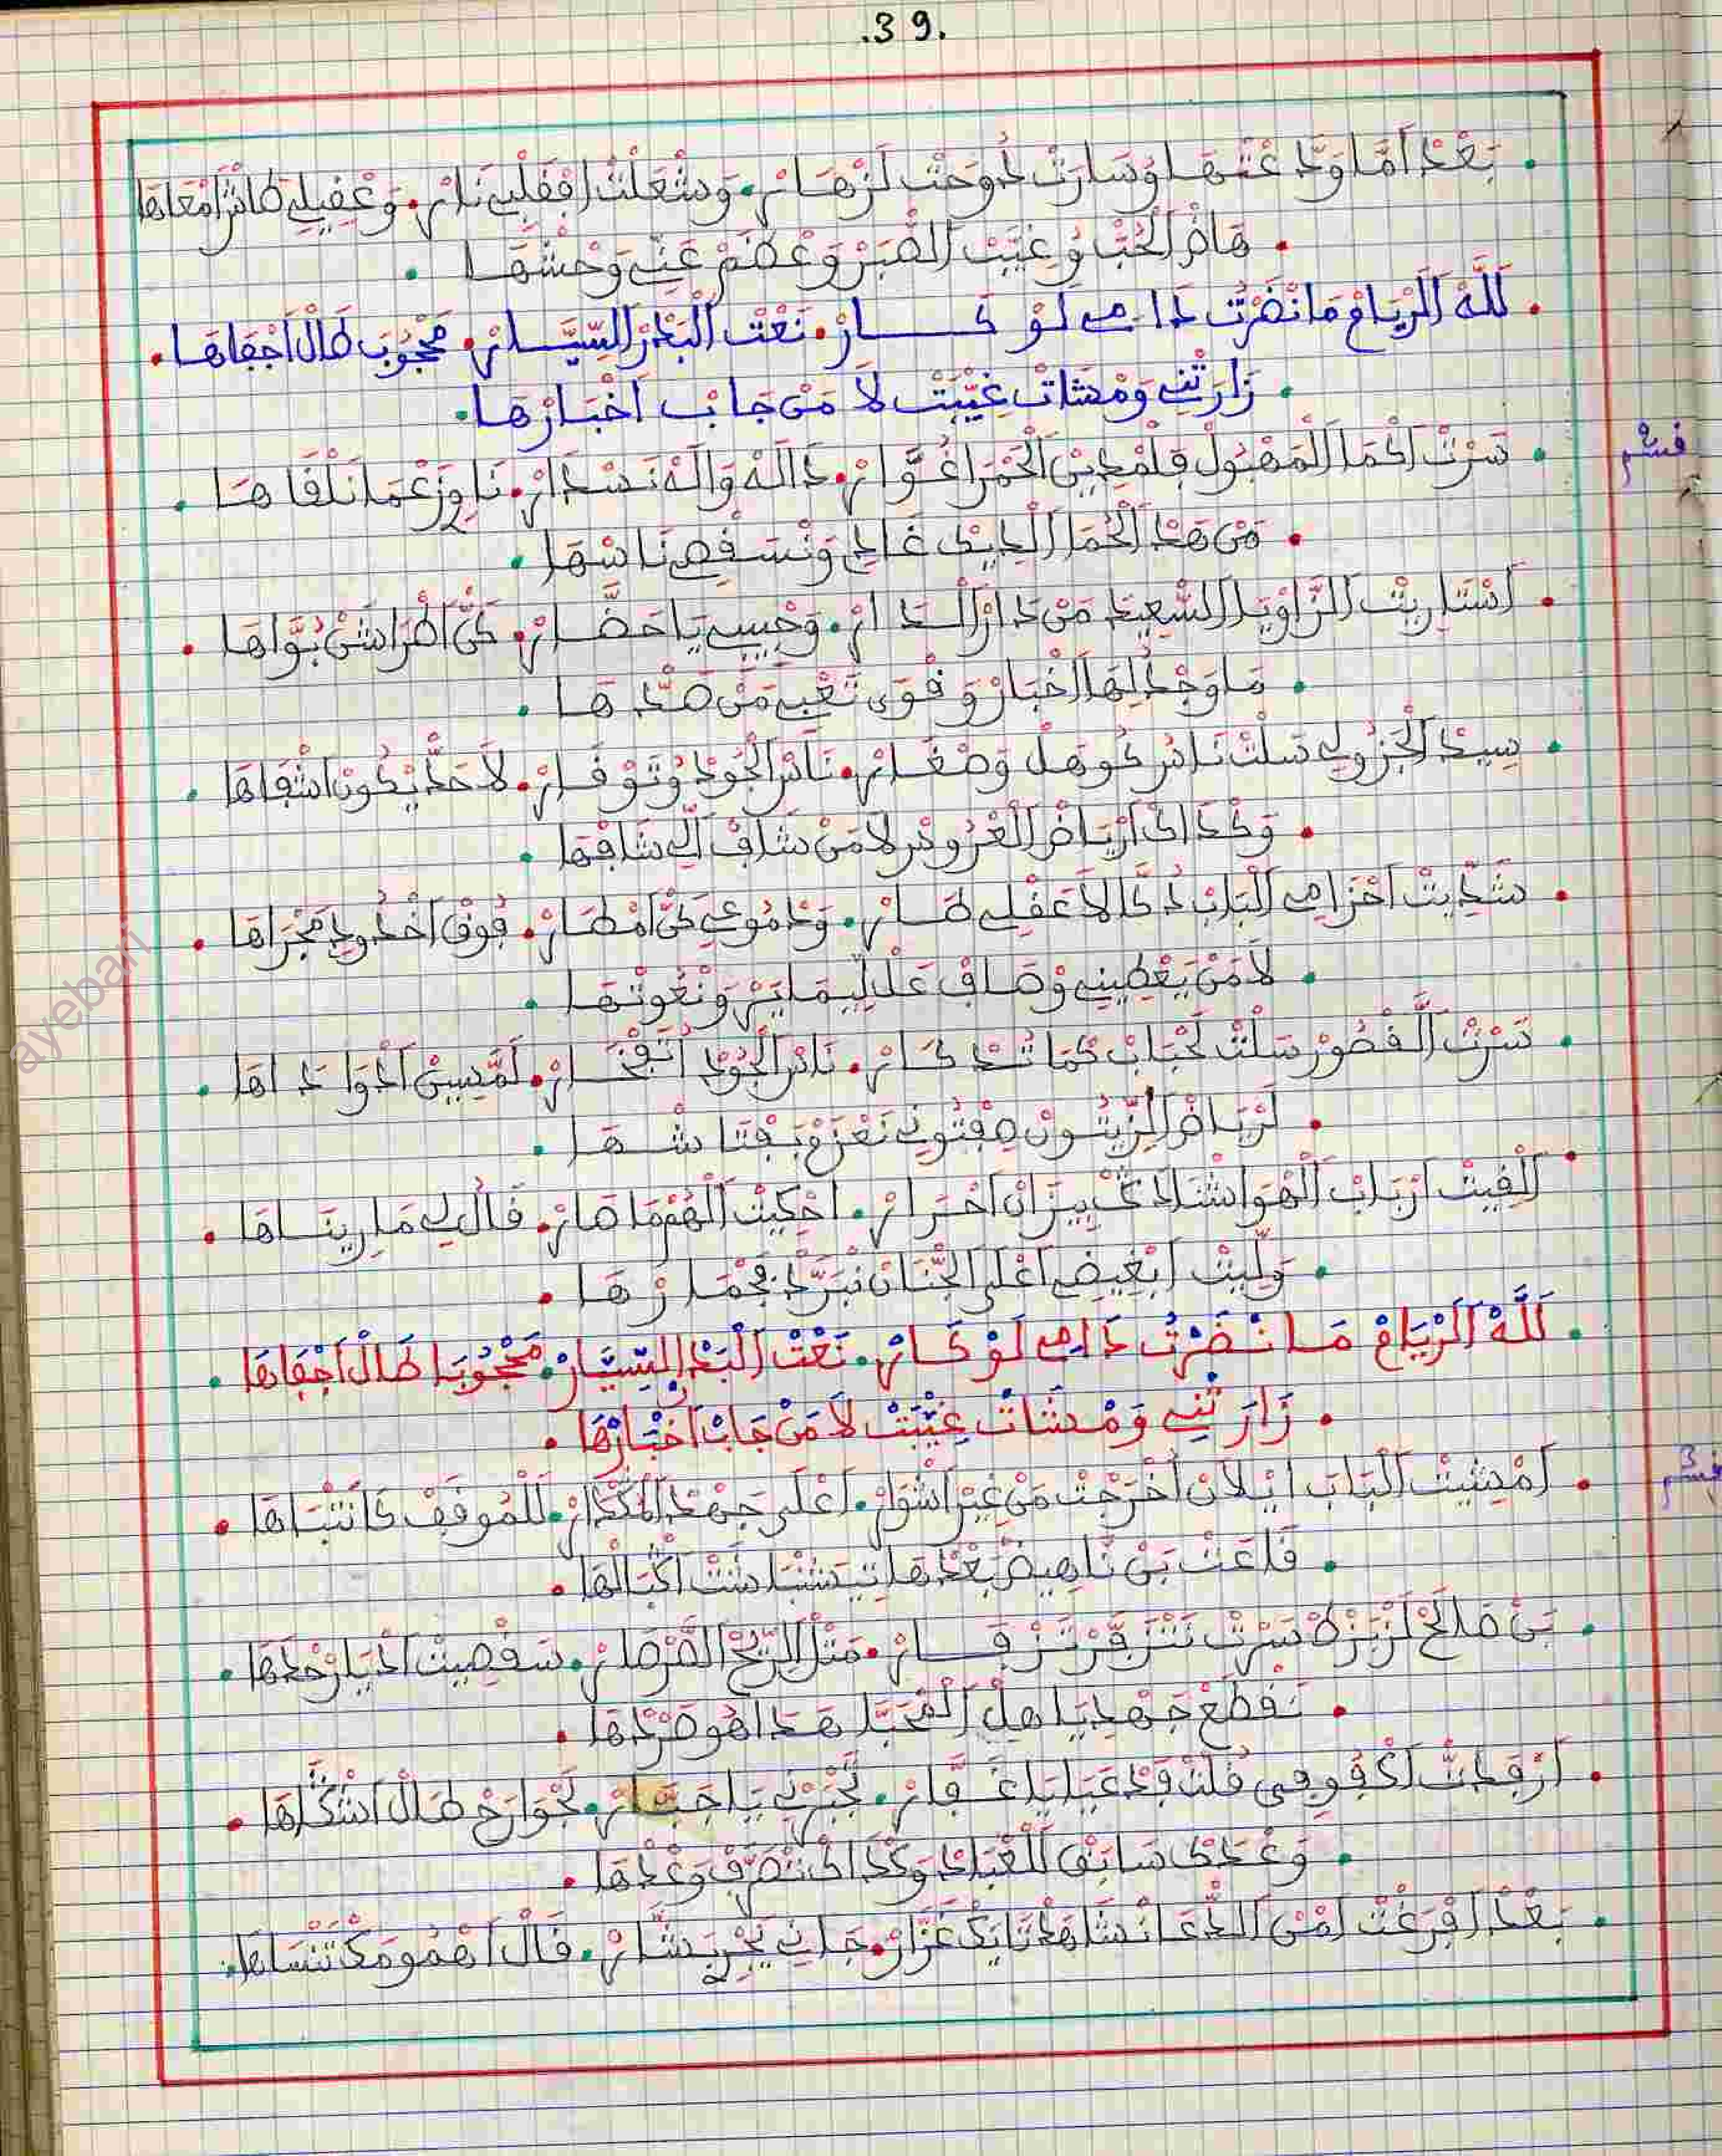 .39.
. بَعْدْ اَمَّا وَدَّعْتْهَا وْسَارَتْ دُوحَتْ لَزْهَارْ. وَشْعَلْتْ اِفْقَلْبِي نَارْ. وَعْقِيلِي طَاشْ اَمْعَاهَا
. هَاضْ اَلْحُبّْ وُ غِيَّبْ اَلصّْبَرْ وَعْضَمْ عَنِّي وَحْشْهَا .
. لَلَّهْ اَلرْيَامْ مَا نْضَرْتْ دَامِي لَوْ كَارْ. نَعْتْ اَلْبَدْرْ اَلسِّيَّارْ. مَحْجُوبَ طَالْ اَجْفَاهَا .
. زَارَتْنِي وَمْشَاتْ غِيّْبَتْ لاَ مَنْ جَابْ اَخْبَارْهَا .
قسم 2
. سَرْتْ اَكْمَا اَلْمَهْبُولْ فِلَمْدِينْ اَلْحَمْرَا غُوَّارْ. دَالَهْ وَالَهْ نَسْدَارْ. نَاوِزَعْمَا نَلْقَاهَا .
. مَنْ هَدْ اَلْحُمَا اَلْدِيكْ غَادِي وَنْسَقْصِي نَاسْهَا .
. اَسْتَارِيتْ اَلزَّاوْيَا اَلسّْعِيدَ مَنْ دَارْ اَلْدَارْ. وَحْبِيبِي يَا حَضَّارْ. كَنّْ اَطْرَاشَنْ بُوَّاهَا .
. مَا وَجْدْ لِهَا اَخْبَارْ وَ قْوَى تَعْبِي مَنْ صَدّْهَا .
. سِيدْ اَلْجَزُولِي سَلْتْ نَاسْ كُوهَلْ وَصْغَارْ. نَاسْ اَلْجُودْ وُتَوْقَارْ. لاَ حَدّْ يْكُونْ اَشْفَاهَا .
. وَكْدَاكْ اَرْيَاضْ اَلْعْرُوسْ لاَ مَنْ شَافْ اَلِّي شَافْهَا .
. شَدِّيتْ اَحْزَامِي اَلْبَابْ دُكَّالاَ عَقْلِي طَارْ. وَدْمُوعِي كَنّْ اَمْطَارْ. فُوقْ اَخْدُودِي مَجْرَاهَا .
. لاَ مَنْ يَعْطِينِي وْصَافْ عَدْلِيمَايَرْ وَنْعُوتْهَا .
. سَرْتْ اَلْقْصُورْ سَلْتْ لَحْبَابْ كْمَا تُدْكَارْ. نَاسْ اَلْجُودْ اُتَفْخَارْ. لَمَّسِينْ اَدْوَا دَاهَا .
. لَرْيَاضْ اَلزِّيتُونْ مَفْتُونِي نَعْزَمْ بَفْتَاشْهَا .
. اَلْقِيتْ اَرْبَابْ اَلْهْوَا شْدَادْ كْبِيزَانْ اَحْرَارْ. اَحْكِيتْ اَلْهُمْ مَا صَارْ. قَالُ لِي مَا رِينَاهَا .
. وَلِّيتْ اَبْغِيضِي اَعْلَى اَلْجْنَانْ نْبَرَّدْ جْمَارْهَا .
. لَلَّهْ اَلرْيَامْ مَا نْضَرْتْ دَامِي لَوْ كَارْ. نَعْتْ اَلْبَدْرْ اَلسِّيَّارْ. مَحْجُوبَا طَالْ اَجْفَاهَا .
. زَارَتْنِي وَمْشَاتْ غِيّْبَتْ لاَ مَنْ جَابْ اَخْبَارْهَا .
قسم 3
. اَمْشِيتْ اَلْبَابْ اَيْلاَنْ اَخْرَجْتْ مَنْ غِيرْ اَشْوَارْ. اَعْلَى جَهْدْ اَلْمَكْدَارْ. لَلْمُوقَفْ كَانَتْبَاهَا .
. قَاعَتْ بَنْ نَاهِيضْ بَعْدْهَا تِيشَنْبَاشَنْتْ اَكْبَالْهَا .
. بَنْ صَالَحْ لَزْبَزْطْ سَرْتْ نَتْزَفَّرْ تَزْفَارْ. مَتْلْ اَلرِّيحْ اَلصَّرْصَارْ. سَقْصِيتْ اَخْيَارْ حْدَاهَا .
. نَقْطَعْ جَهْدِي يَا هْلْ اَلْمْحَبَّا هَدَا هُوَ صَرّْدْهَا .
. اَرْفَدْتّْ اَكْفُوفِي قُلْتْ فَدْعَيَا يَا غَفَّارْ. تَجْبَرْنِي يَا جَبَّارْ. لَجْوَارَحْ طَالْ اَشْكَاهَا .
. وَعْدَكْ سَابَقْ لَلْعْبَادْ وَكْدَاكْ نْتْصَرَّفْ وَعْدْهَا .
. بَعْدْ اَفْرَغْتْ اَمْنْ اَلدّْعَا نْشَاهَدْ نَايَكْ عَزَّارْ. جَانِي يَجْرِي بَشَّارْ. قَالْ اَهْمُومَكْ تَنْسَاهَا .